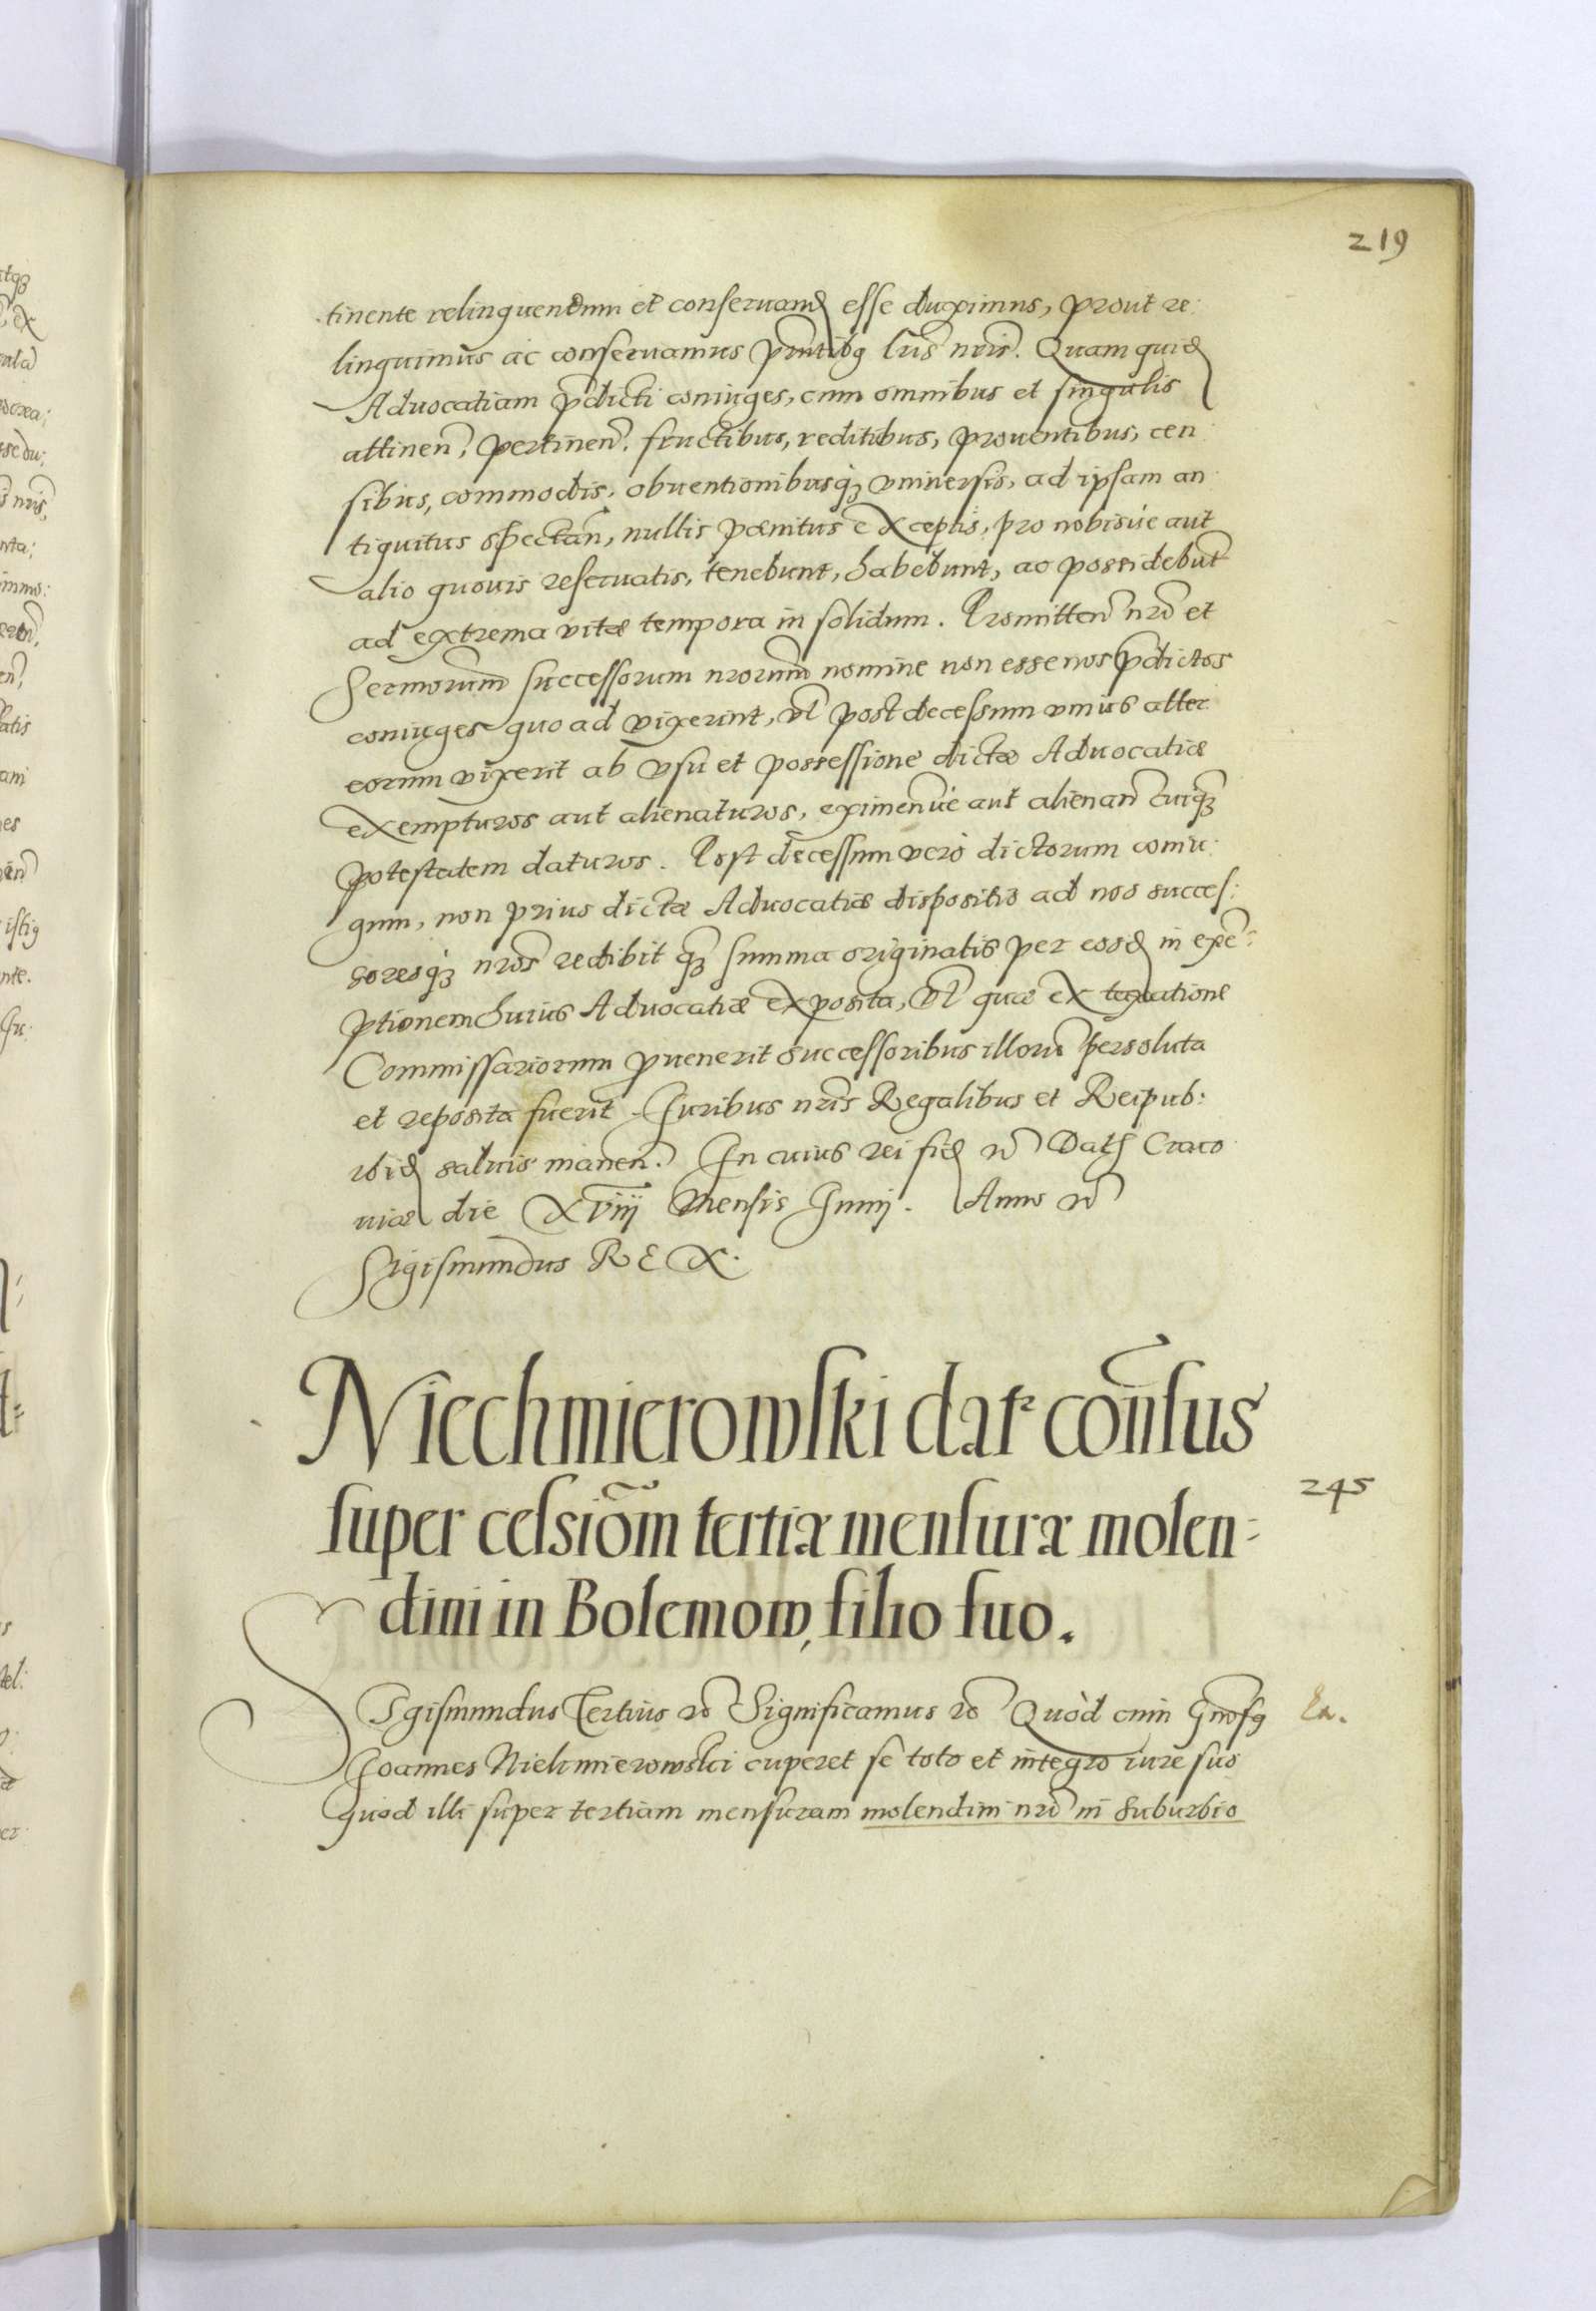 219
tinente relinquendum et conseruand esse duximus, prout re:
linquimus ac conseruamus pñtibq; lr̃is nr̃is. Quam quid
Aduocatiam p̃dicti coniuges, cum omnibus et singulis
attinen, pertinen. fructibus, reditibus, prouentibus, cen:
sibus, commodis, obuentionibusq; vniuersis, ad ipsam an:
tiquitus spectan, nullis pænitus exceptis, pro nobisúe aut
alio quouis reseruatis, tenebunt, habebunt, ac possidebunt
ad extrema vitæ tempora in solidum. Promitten nr̃o et
Sermorum successorum nrorum nomine non esse nos p̃dictos
coniuges quo ad vixerint, vl post decessum vnius alter
eorum vixerit ab vsu et possessione dictæ Aduocatiæ
exempturos aut alienaturos, eximenúe aut alienan cuiq;
potestatem daturos. Post decessum verò dictorum coniu:
gum, non prius dictæ Aduocatiæ dispositio ad nos succes:
soresq; nr̃os redibit q; summa originalis per eosd in exē:
ptionem huius Aduocatiæ exposita, vl quæ ex taxatione
Commissariorum puenerit successoribus illorũ persoluta
et reposita fuerit. Iuribus nr̃is Regalibus et Reipub:
ibid saluis manen. In cuius rei fid &c Dat Craco
uiæ die XViij Mensis Iunij. Anno &c
Sigismundus REX.
Niechmierowski dat consus
super celsiom̃ tertiæ mensuræ molen:
245
dini in Bolemow, filio suo.
SIgismundus Tertius &c Significamus &c Quòd cum Gnosq
Ex.
Ioannes Niehmierowski cuperet se toto et integro iure suo
quod illi super tertiam mensuram molendini nr̃i in suburbio